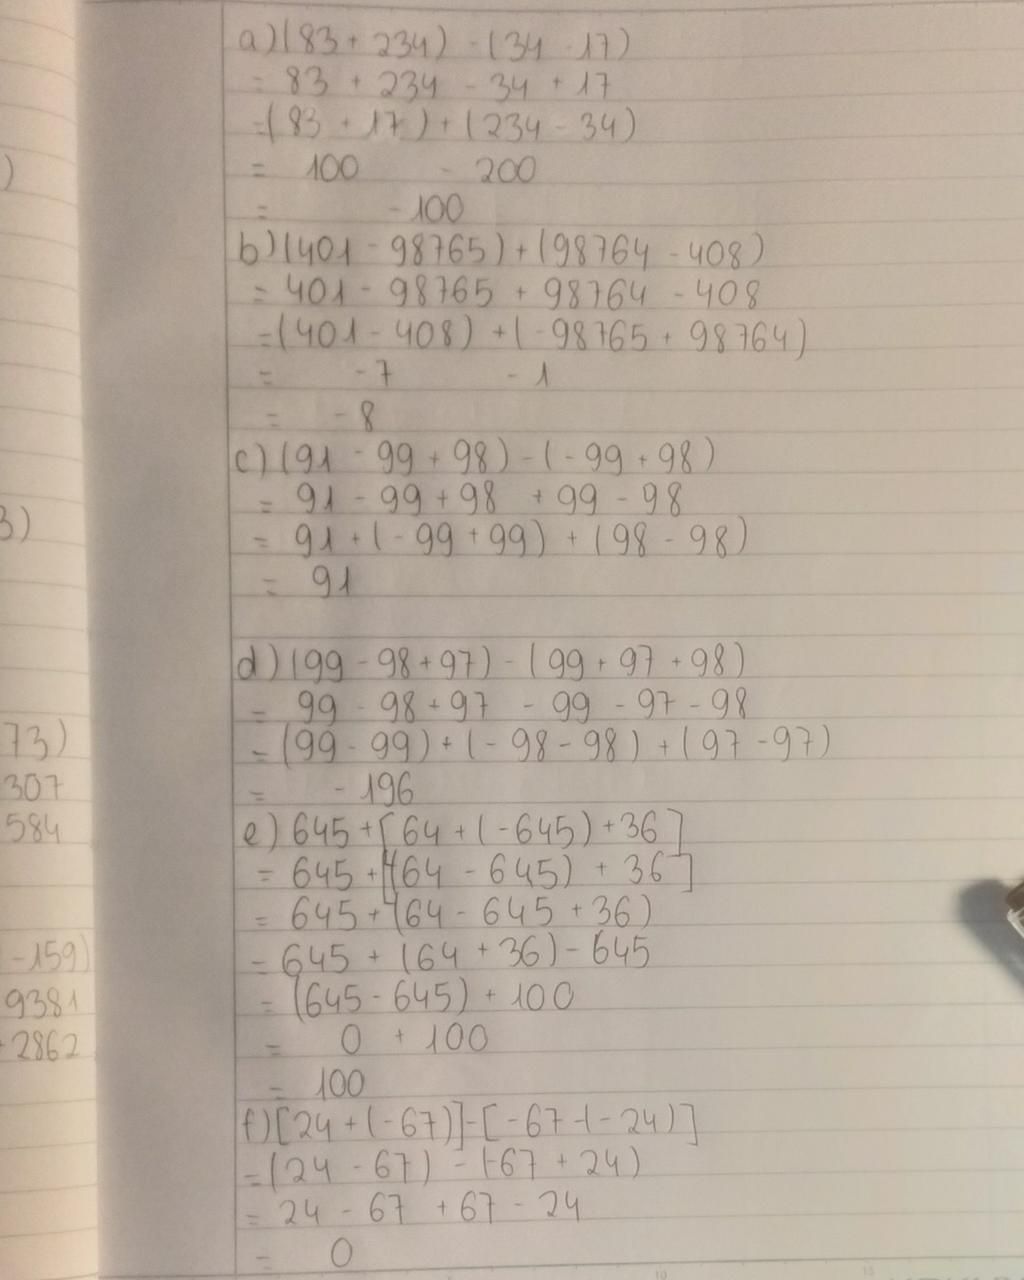 )
3)
73)
307
584
-159)
9381
2862
a) (83 + 234) - (34 - 17)
= 83 + 234 - 34 + 17
= (83 + 17) + (234 - 34)
= 100 - 200
= -100
b) (401 - 98765) + (98764 - 408)
= 401 - 98765 + 98764 - 408
= (401 - 408) + (-98765 + 98764)
= -7 -1
= -8
c) (91 - 99 + 98) - (-99 + 98)
= 91 - 99 + 98 + 99 - 98
= 91 + (-99 + 99) + (98 - 98)
= 91
d) (99 - 98 + 97) - (99 + 97 + 98)
= 99 - 98 + 97 - 99 - 97 - 98
= (99 - 99) + (-98 - 98) + (97 - 97)
= -196
e) 645 + [64 + (-645) + 36]
= 645 + [(64 - 645) + 36]
= 645 + (64 - 645 + 36)
= 645 + (64 + 36) - 645
= (645 - 645) + 100
= 0 + 100
= 100
f) [24 + (-67)] - [-67 - (-24)]
= (24 - 67) - (-67 + 24)
= 24 - 67 + 67 - 24
= 0